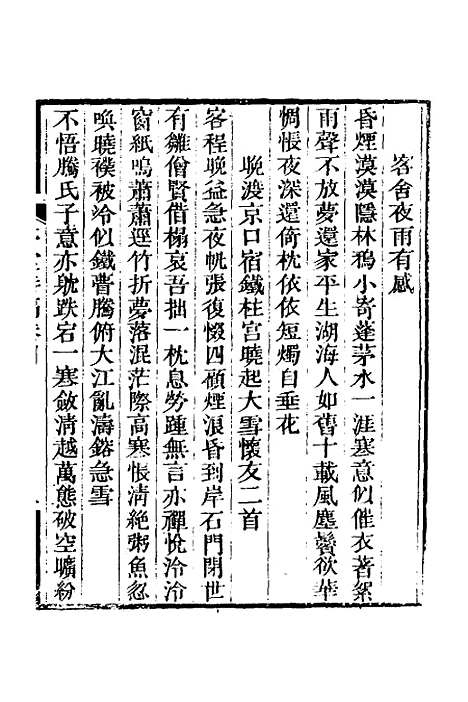 客舍夜雨有感
昏煙漠漠隱林鴉小寄蓬茅水一涯寒意似催衣著絮
雨聲不放夢還家平生湖海人如舊十載風塵鬢欲華
惆悵夜深還倚枕依依短燭自垂花
晚渡京口宿鐵柱宮曉起大雪懷友二首
客程晚益急夜帆張復惙四顧煙浪昏到岸石門閉世
有雛僧賢借榻哀吾拙一枕息勞踵無言亦禪悅泠泠
窗紙鳴蕭蕭逕竹折夢落混茫際高寒悵清絕粥魚忽
喚曉襆被冷似鐵瞢騰俯大江亂濤鎔急雪
不悟騰氏子意亦眈跌宕一寒斂清越萬態破空曠紛